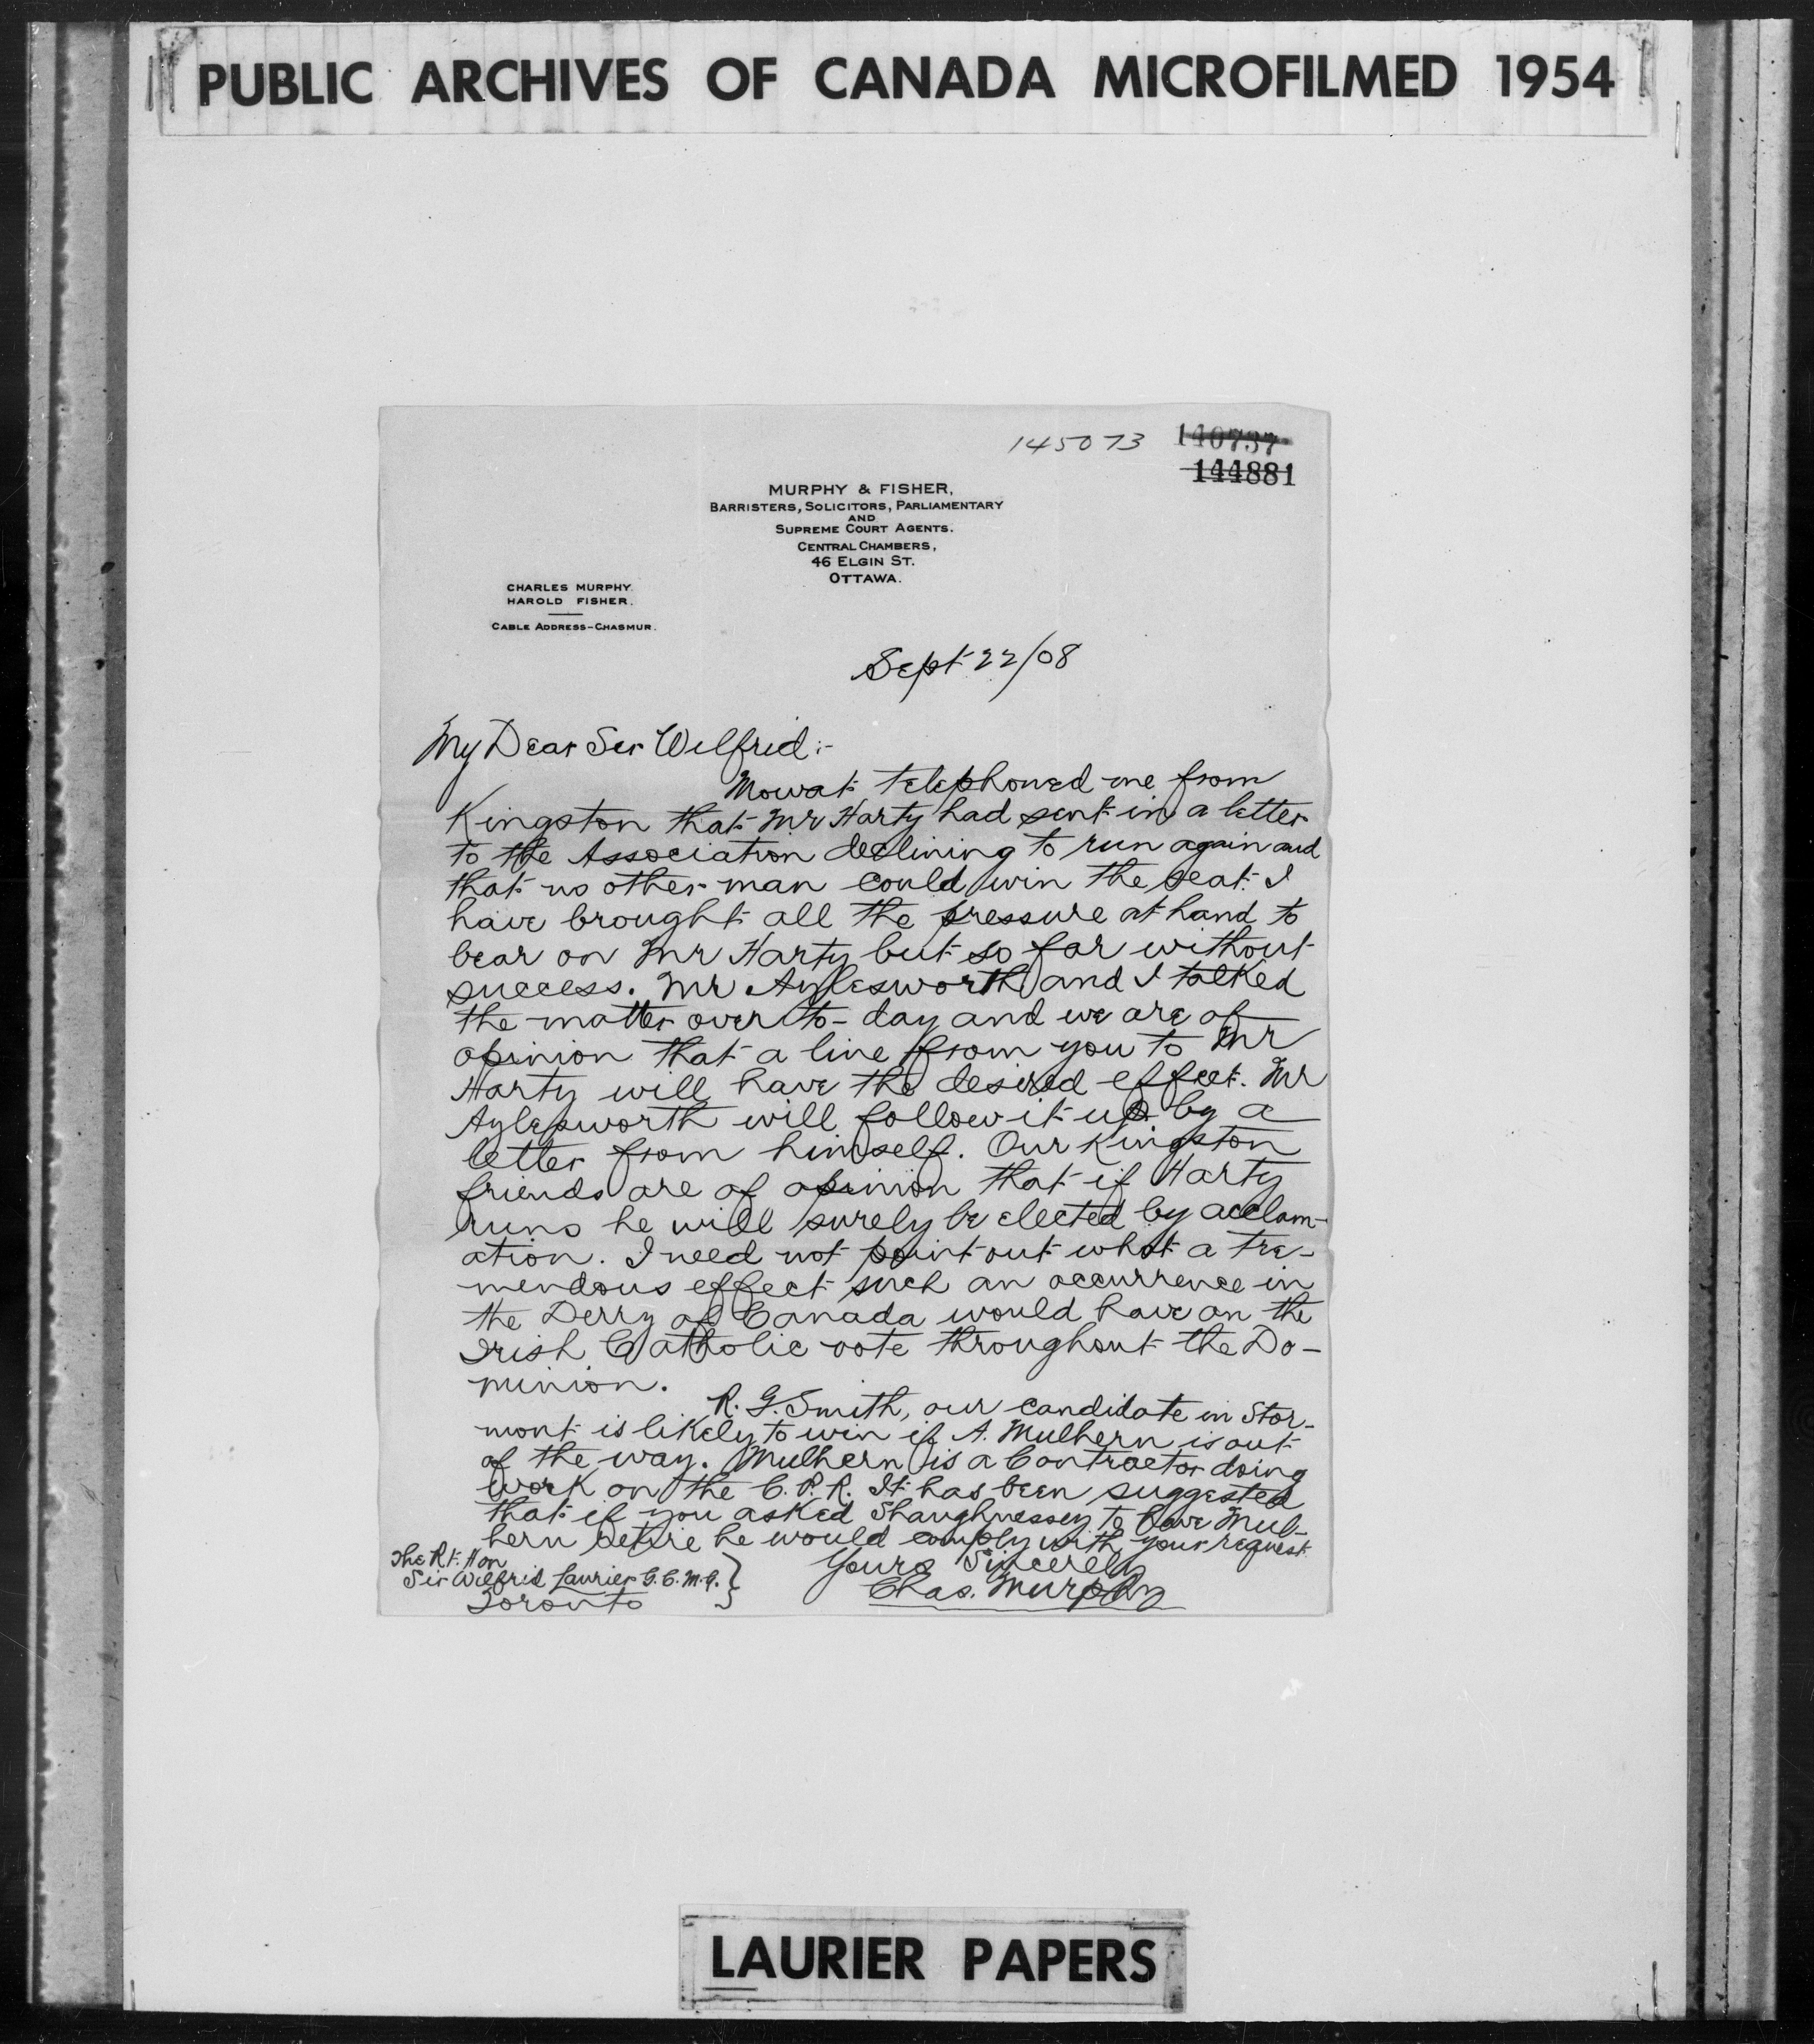 PUBLIC ARCHIVES OF CANADA MICROFILMED 1954
145073 140737
144881
MURPHY & FISHER,
BARRISTERS, SOLICITORS, PARLIAMENTARY
AND
SUPREME COURT AGENTS.
CENTRAL CHAMBERS,
46 ELGIN ST.
OTTAWA.
CHARLES MURPHY.
HAROLD FISHER.
CABLE ADDRESS-CHASMUR.
Sept 22/08
My Dear Sir Wilfrid:-
Mowat telephoned me from
Kingston that Mr Harty had sent in a letter
to the Association declining to run again and
that no other man could win the seat. I
have brought all the pressure at hand to
bear on Mr Harty but so far without
success. Mr Aylesworth and I talked
the matter over to-day and we are of
opinion that a line from you to Mr
Harty will have the desired effect. Mr
Aylesworth will follow it up by a
letter from himself. Our Kingston
friends are of opinion that if Harty
runs he will surely be elected by acclam-
ation. I need not point out what a tre-
mendous effect such an occurrence in
the Derry of Canada would have on the
Irish Catholic vote throughout the Do-
minion.
R. G. Smith, our candidate in Stor-
mont is likely to win if A. Mulhern is out
of the way. Mulhern is a Contractor doing
work on the C.P.R. It has been suggested
that if you asked Shaughnessey to have Mul-
hern retire he would comply with your request.
Yours Sincerely
Chas. Murphy
The Rt. Hon
Sir Wilfrid Laurier G.C.M.G. }
Toronto
LAURIER PAPERS